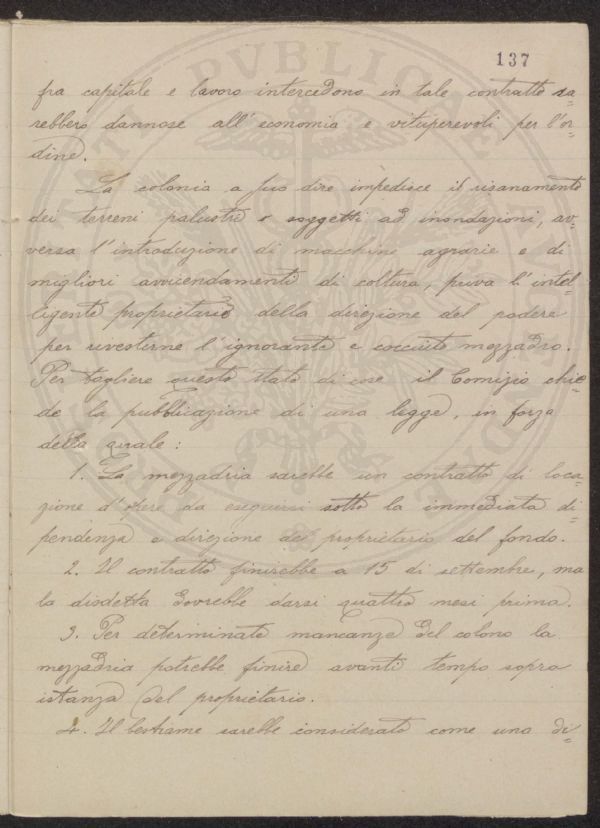 137
fra capitale e lavoro intercedono in tale contratto sa=
rebbero dannose all'economia e vituperevoli per l'or=
dine.
La colonia a può dire impedisce il risanamento
dei terreni palustri e soggetti ad inondazioni, av=
versa l'introduzione di macchine agrarie e di
migliori avvicendamenti di coltura, priva l'intel=
ligente proprietario della direzione del podere
per rivestirne l'ignorante e cocciuto mezzadro.
Per togliere questo stato di cose il Comizio chie=
de la pubblicazione di una legge, in forza
della quale:
1. La mezzadria sarebbe un contratto di loca=
zione d'opere da eseguirsi sotto la immediata di=
pendenza e direzione del proprietario del fondo.
2. Il contratto finirebbe a 15 di settembre, ma
la disdetta dovrebbe darsi quattro mesi prima.
3. Per determinate mancanze del colono la
mezzadria potrebbe finire avanti tempo sopra
istanza del proprietario.
4. Il bestiame sarebbe considerato come una di=